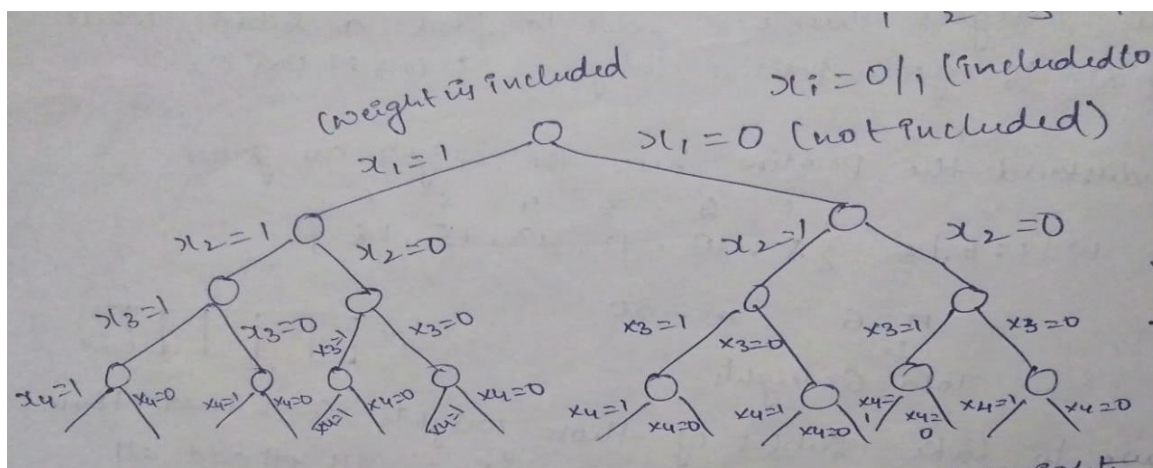 1 2 3
(weight is included
xi = 0/1 (included to
x1 = 1
x1 = 0 (not included)
x2 = 1
x2 = 0
x2 = 1
x2 = 0
x3 = 1
x3 = 0
x3 = 1
x3 = 0
x3 = 1
x3 = 0
x3 = 1
x3 = 0
x4 = 1
x4 = 0
x4 = 1
x4 = 0
x4 = 1
x4 = 0
x4 = 1
x4 = 0
x4 = 1
x4 = 0
x4 = 1
x4 = 0
x4 = 1
x4 = 0
x4 = 1
x4 = 0